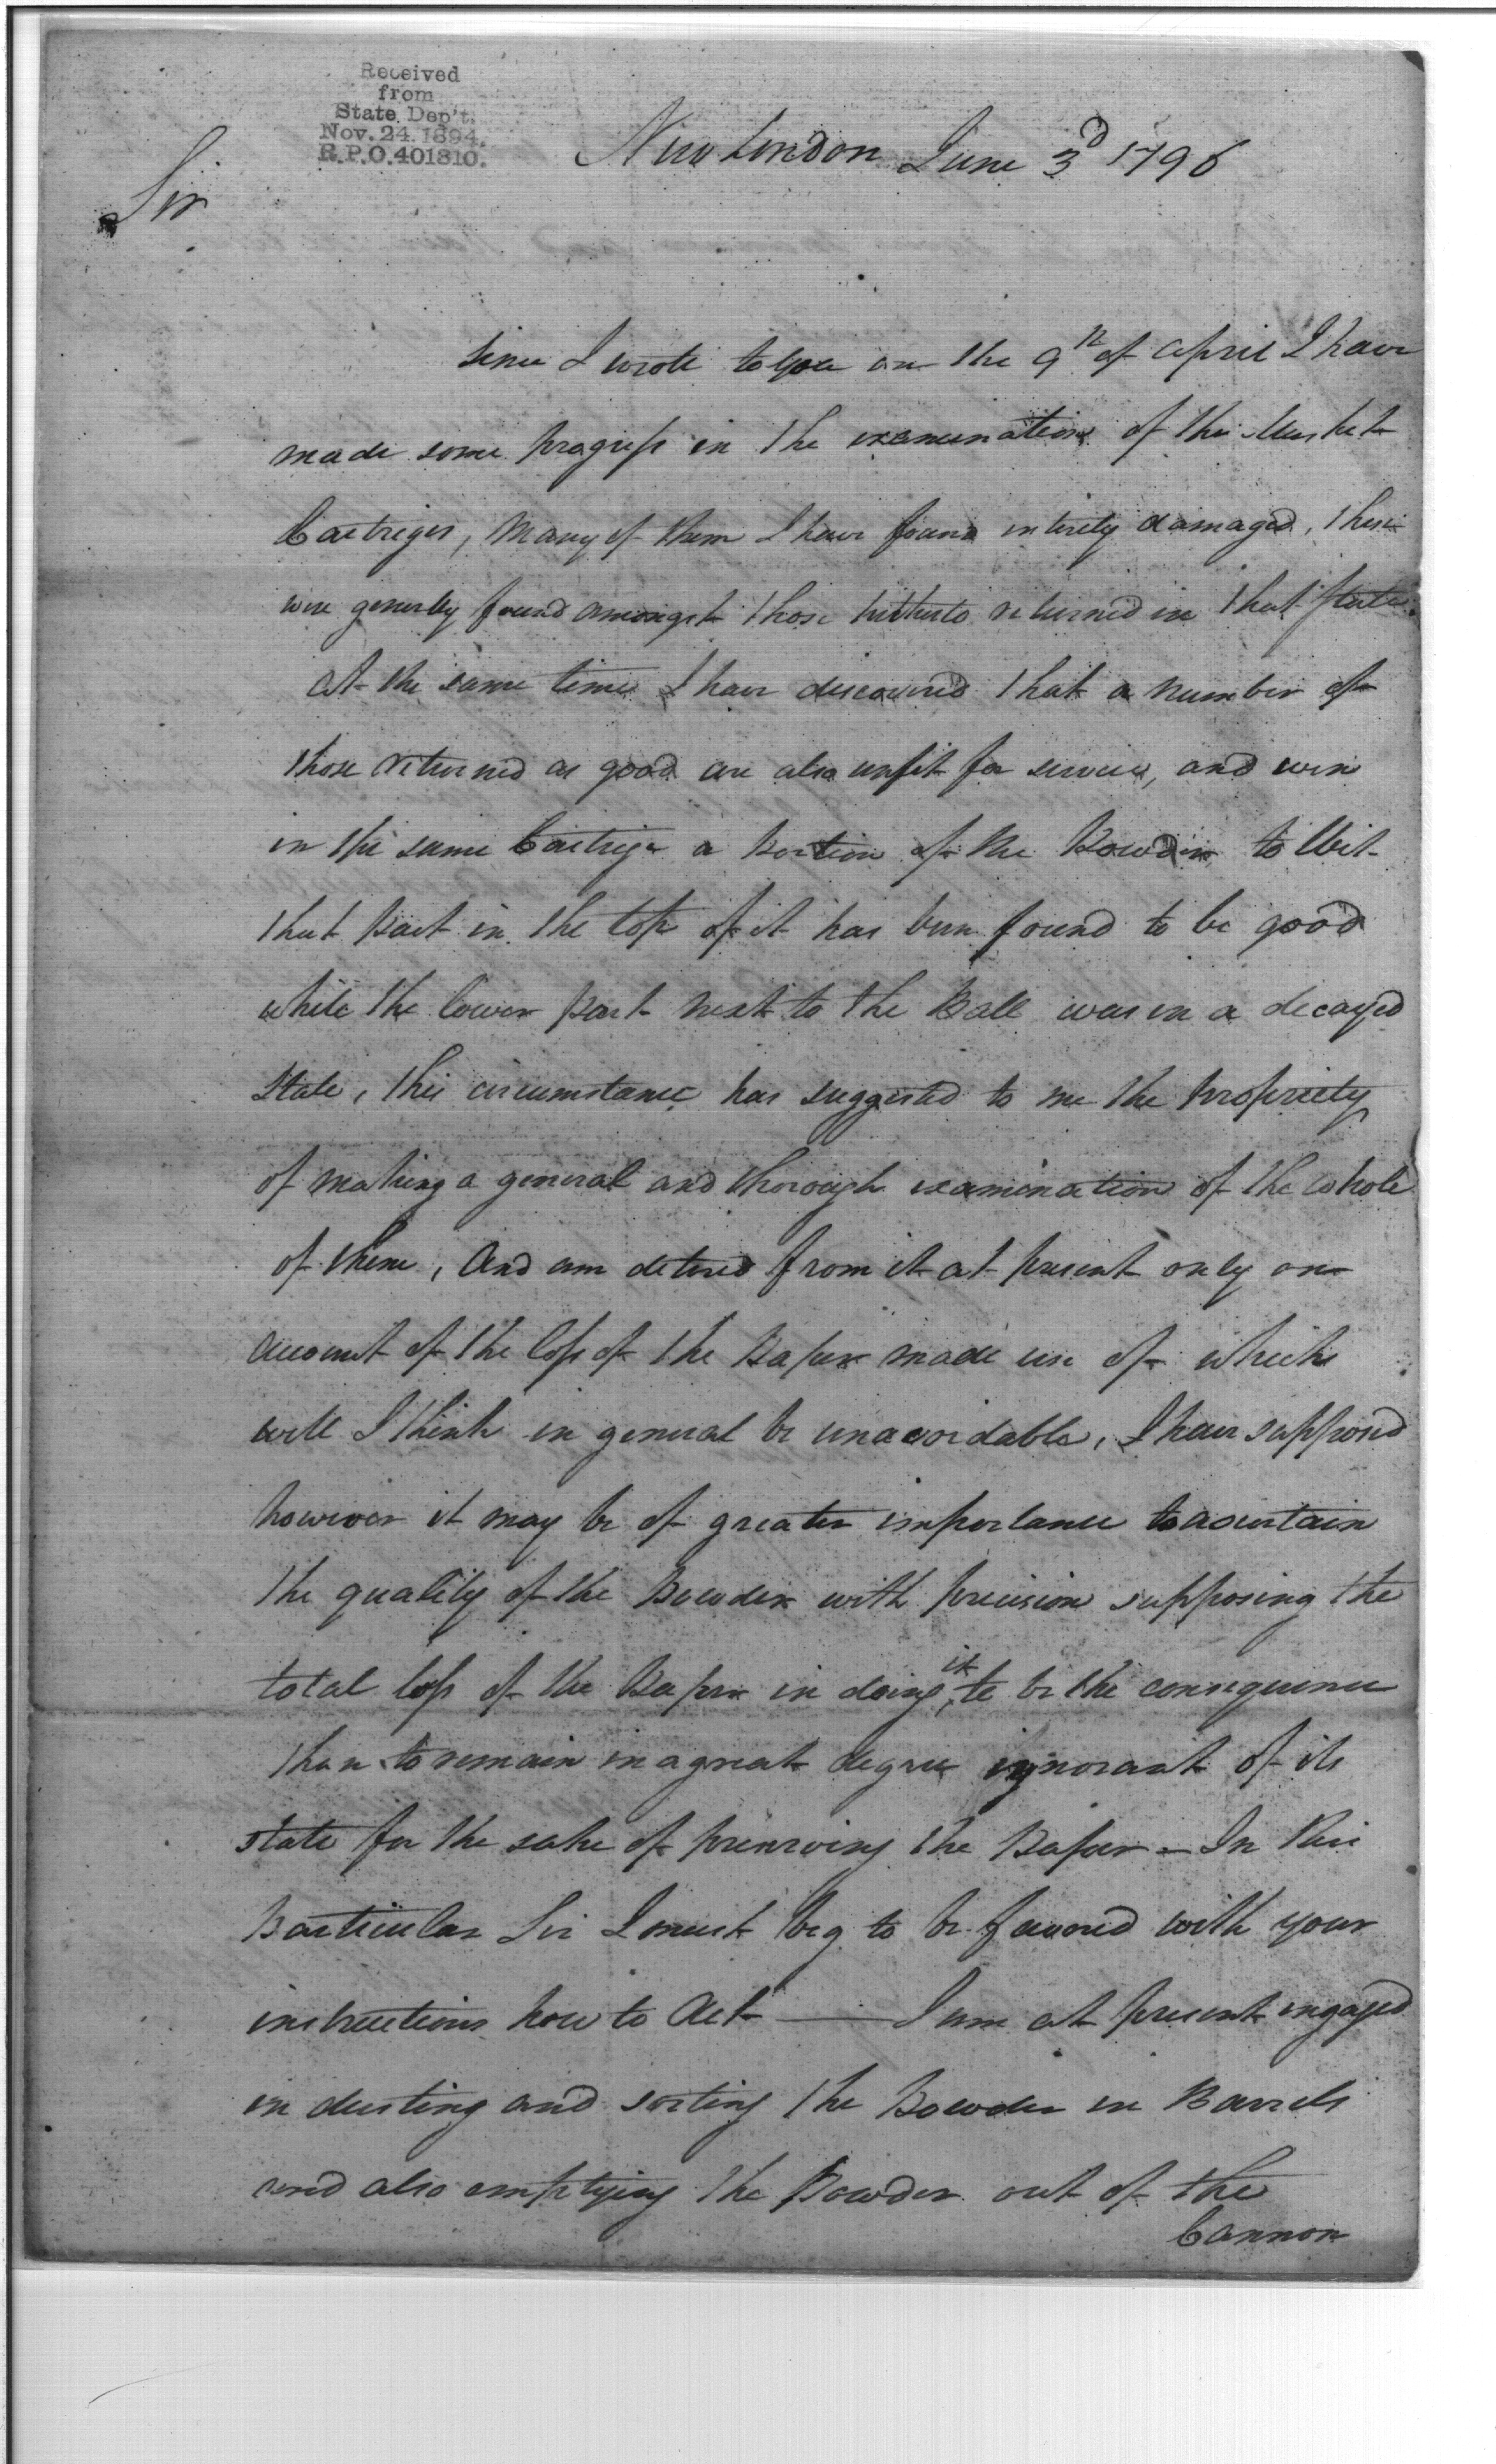 Received
from
State Dep't.
Nov. 24. 1894.
R.P.O. 401810.
New London June 3d 1796
Sir
Since I wrote to you on the 9th of april I have
made some progress in the examination of the Musket
Cartriges, Many of them I have found intirely damaged, these
were generlly found amongst those hitherto returned in that state
At the same time I have discovered that a number of
those returned as good are also unfit for service, and even
in the same Cartrige a Portion of the Powder to Wit
that Part in the top of it has been found to be good
while the lower Part next to the Ball was in a decayed
State, this circumstance has suggested to me the Propriety
of making a general and thorough examination of the whole
of them, And am detered from it at present only on
account of the loss of the Paper made use of which
will I think in general be unavoidable, I have supposed
however it may be of greater importance to ascertain
the quality of the Powder with precision supposing the
total loss of the Paper in doing it to be the consequence
than to remain in a great degree ignorant of its
state for the sake of preserving the Paper — In this
Particular Sir I must beg to be favored with your
instructions how to Act — I am at present ingaged
in dusting and sorting the Powder in Barrels
and also emptying the Powder out of the
Cannon